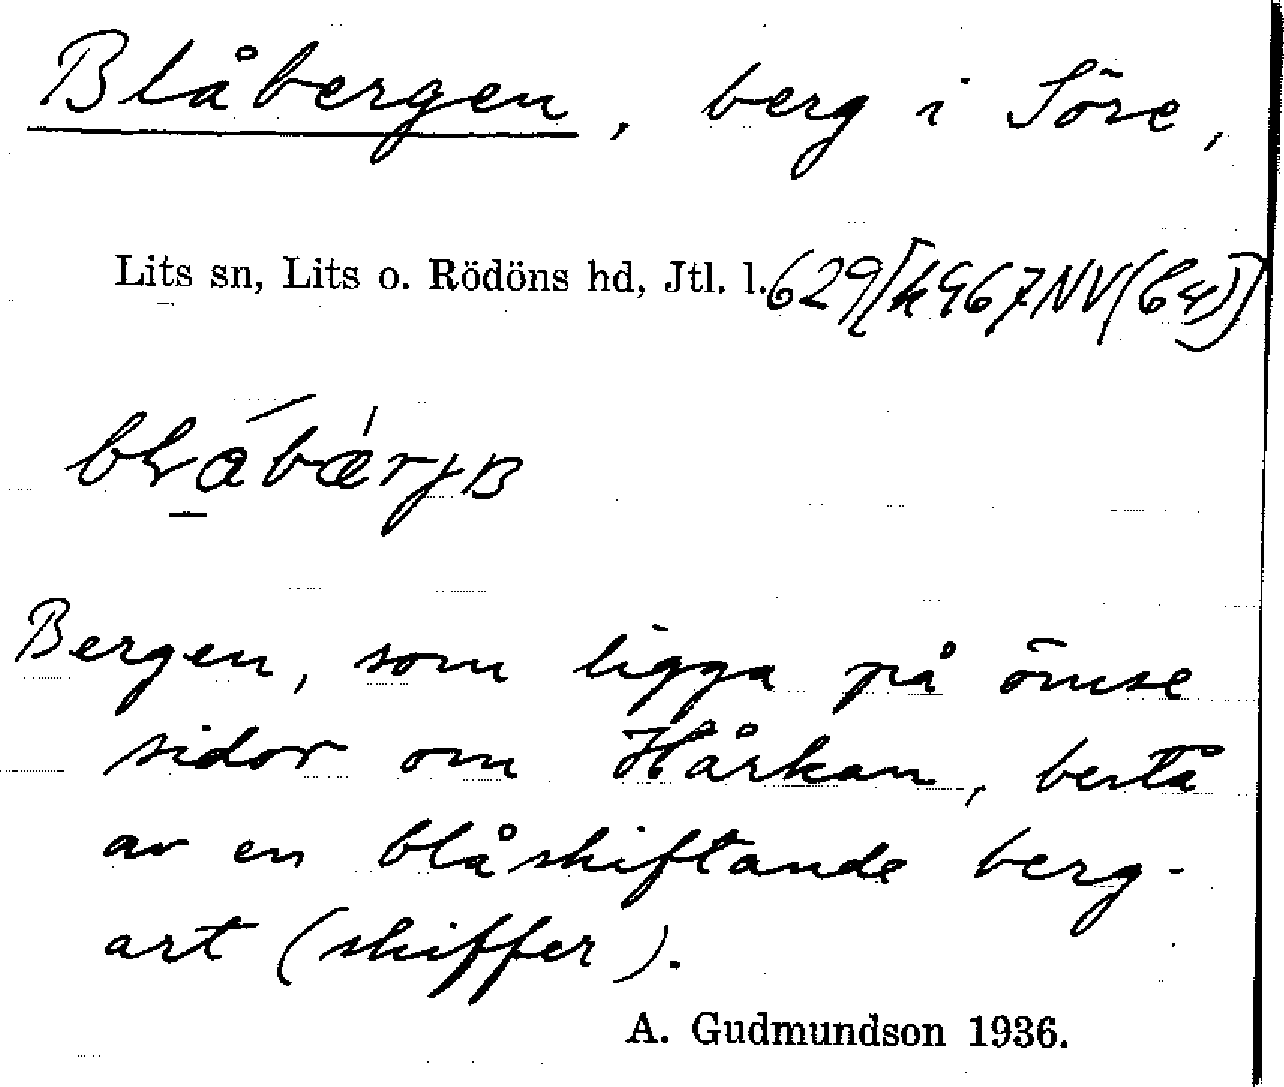 Blåbergen, berg i Söre,
Lits sn, Lits o. Rödöns hd, Jtl. l. 629/[k 967 NV (64)]
Bergen, som ligga på ömse
sidor om Hårkan, bestå
av en blåskiftande berg-
art (skiffer).
A. Gudmundson 1936.